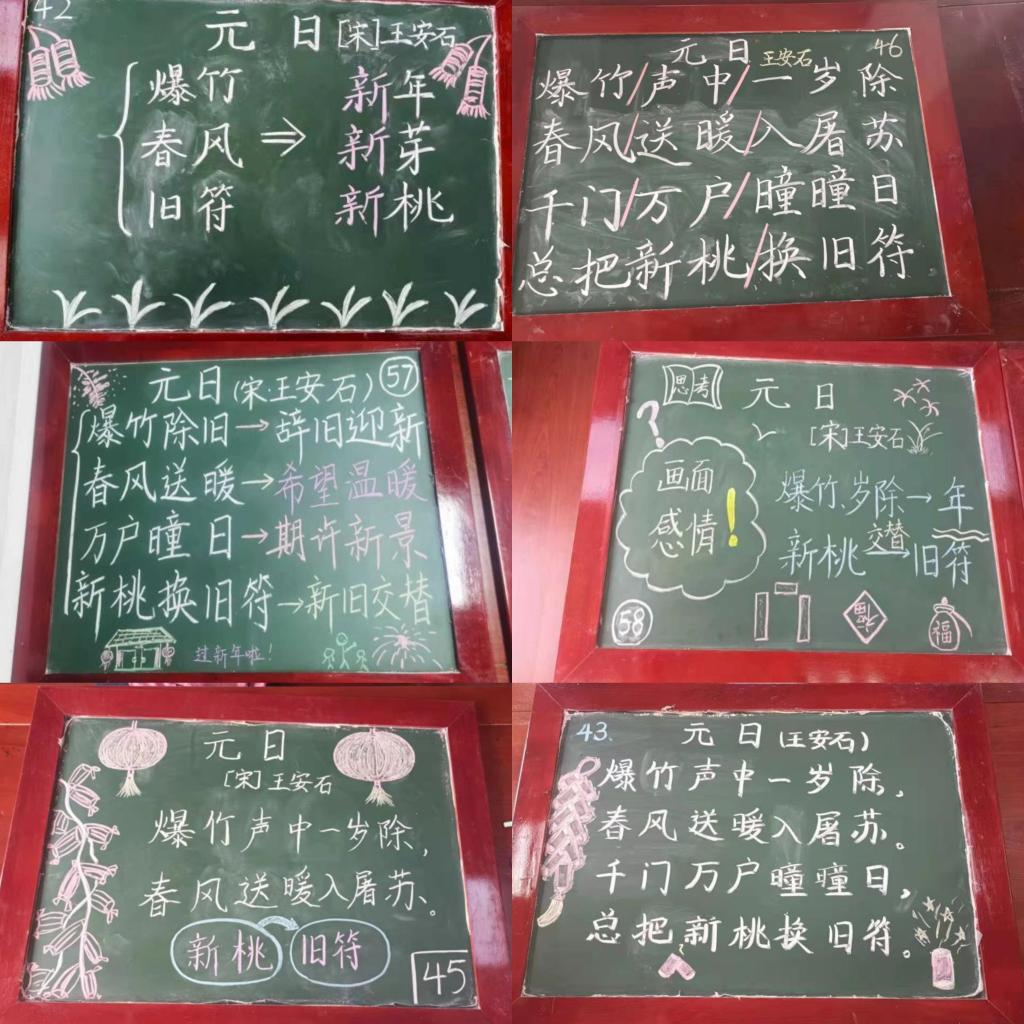 42
元 日 [宋]王安石
爆竹 新年
春风 ⇒ 新芽
旧符 新桃
46
元日 王安石
爆竹/声中/一岁除
春风/送暖/入屠苏
千门/万户/曈曈日
总把新桃/换旧符
元日(宋:王安石) 57
爆竹除旧→辞旧迎新
春风送暖→希望温暖
万户曈日→期许新景
新桃换旧符→新旧交替
过新年啦!
思考
元 日
[宋]王安石
?
画面
感情!
爆竹.岁除→年
交替
新桃→旧符
58
福
福
元 日
[宋]王安石
爆竹声中一岁除,
春风送暖入屠苏。
新桃 旧符
45
43.
元 日(王安石)
爆竹声中一岁除,
春风送暖入屠苏。
千门万户曈曈日,
总把新桃换旧符。